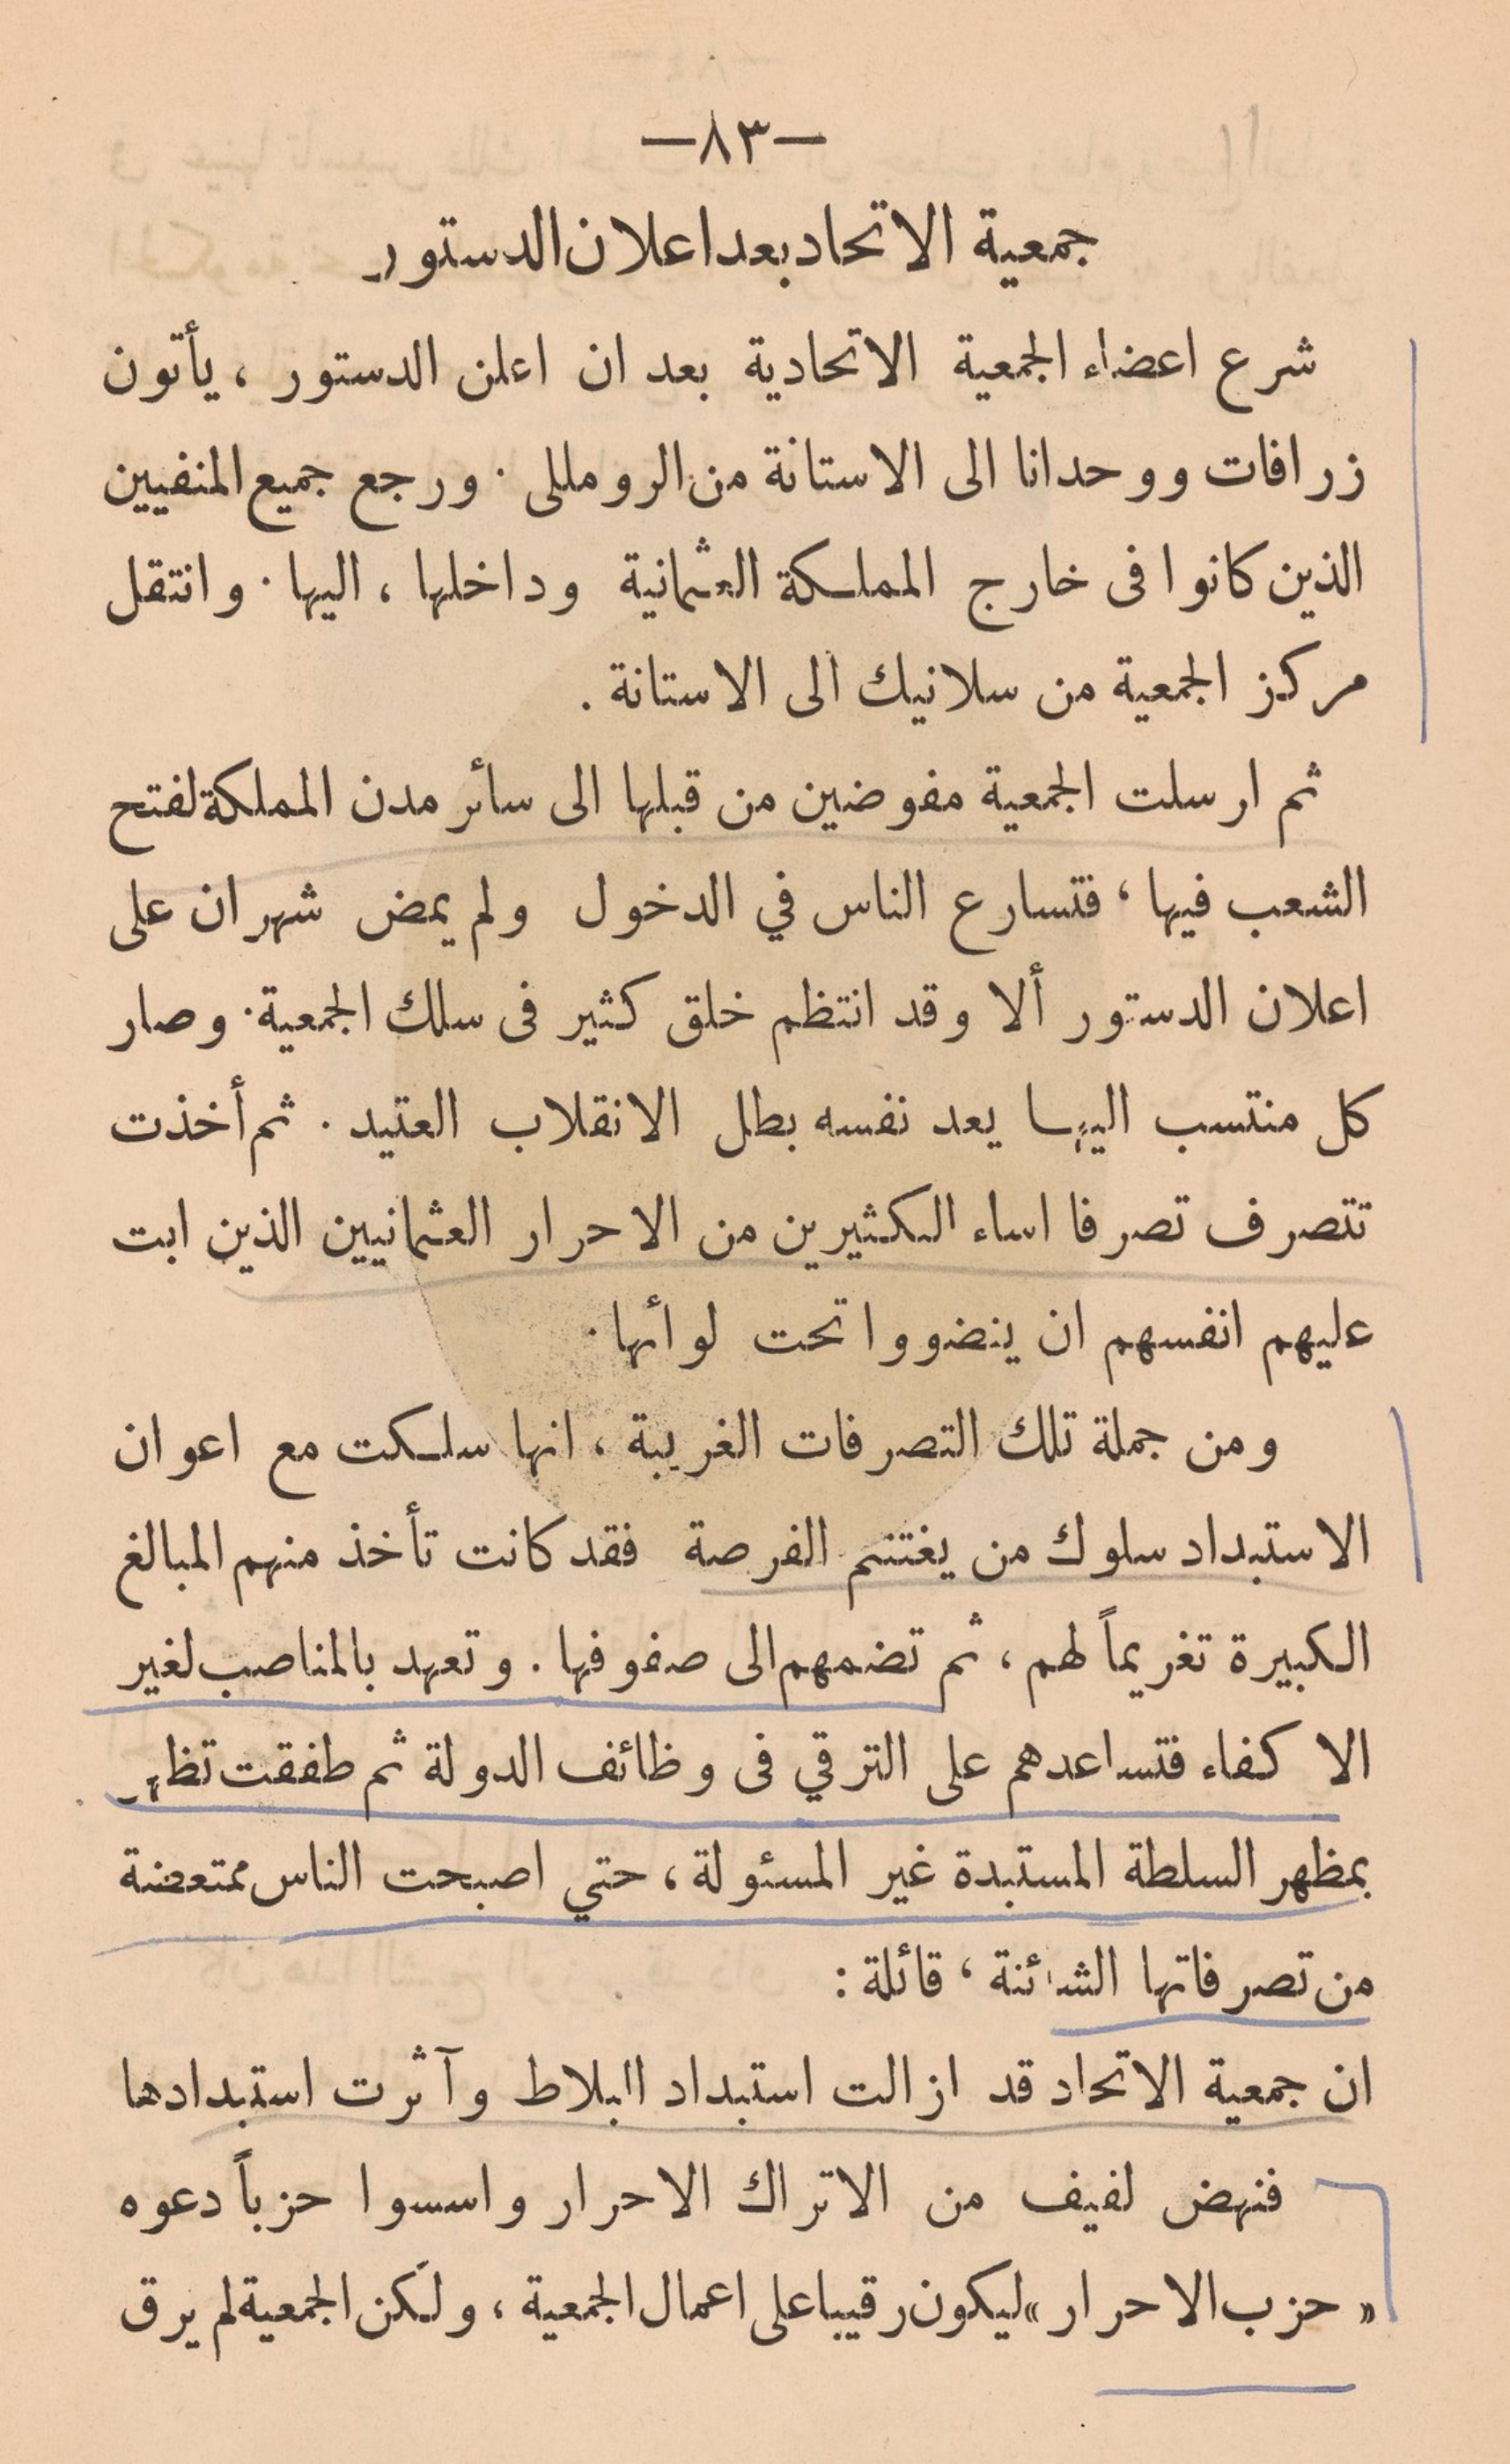 —٨٣—
جمعية الاتحاد بعد اعلان الدستور
شرع اعضاء الجمعية الاتحادية بعد ان اعلن الدستور ، يأتون
زرافات ووحدانا الى الاستانة من الرومللى . ورجع جميع المنفيين
الذين كانوا فى خارج المملكة العثمانية وداخلها ، اليها . وانتقل
مركز الجمعية من سلانيك الى الاستانة .
ثم ارسلت الجمعية مفوضين من قبلها الى سائر مدن المملكة لفتح
الشعب فيها ، فتسارع الناس في الدخول ولم يمض شهران على
اعلان الدستور ألا وقد انتظم خلق كثير فى سلك الجمعية . وصار
كل منتسب اليها يعد نفسه بطل الانقلاب العتيد . ثم أخذت
تتصرف تصرفا اساء الكثيرين من الاحرار العثمانيين الذين ابت
عليهم انفسهم ان ينضووا تحت لوأئها .
ومن جملة تلك التصرفات الغريبة ، انها سلكت مع اعوان
الاستبداد سلوك من يغتنم الفرصة فقد كانت تأخذ منهم المبالغ
الكبيرة تغريماً لهم ، ثم تضمهم الى صفوفها . وتعهد بالمناصب لغير
الاكفاء فتساعدهم على الترقي فى وظائف الدولة ثم طفقت تظهر
بمظهر السلطة المستبدة غير المسئولة ، حتي اصبحت الناس ممتعضة
من تصرفاتها الشائنة ، قائلة :
ان جمعية الاتحاد قد ازالت استبداد البلاط وآثرت استبدادها
فنهض لفيف من الاتراك الاحرار واسسوا حزباً دعوه
« حزب الاحرار » ليكون رقيبا على اعمال الجمعية ، ولكن الجمعية لم يرق